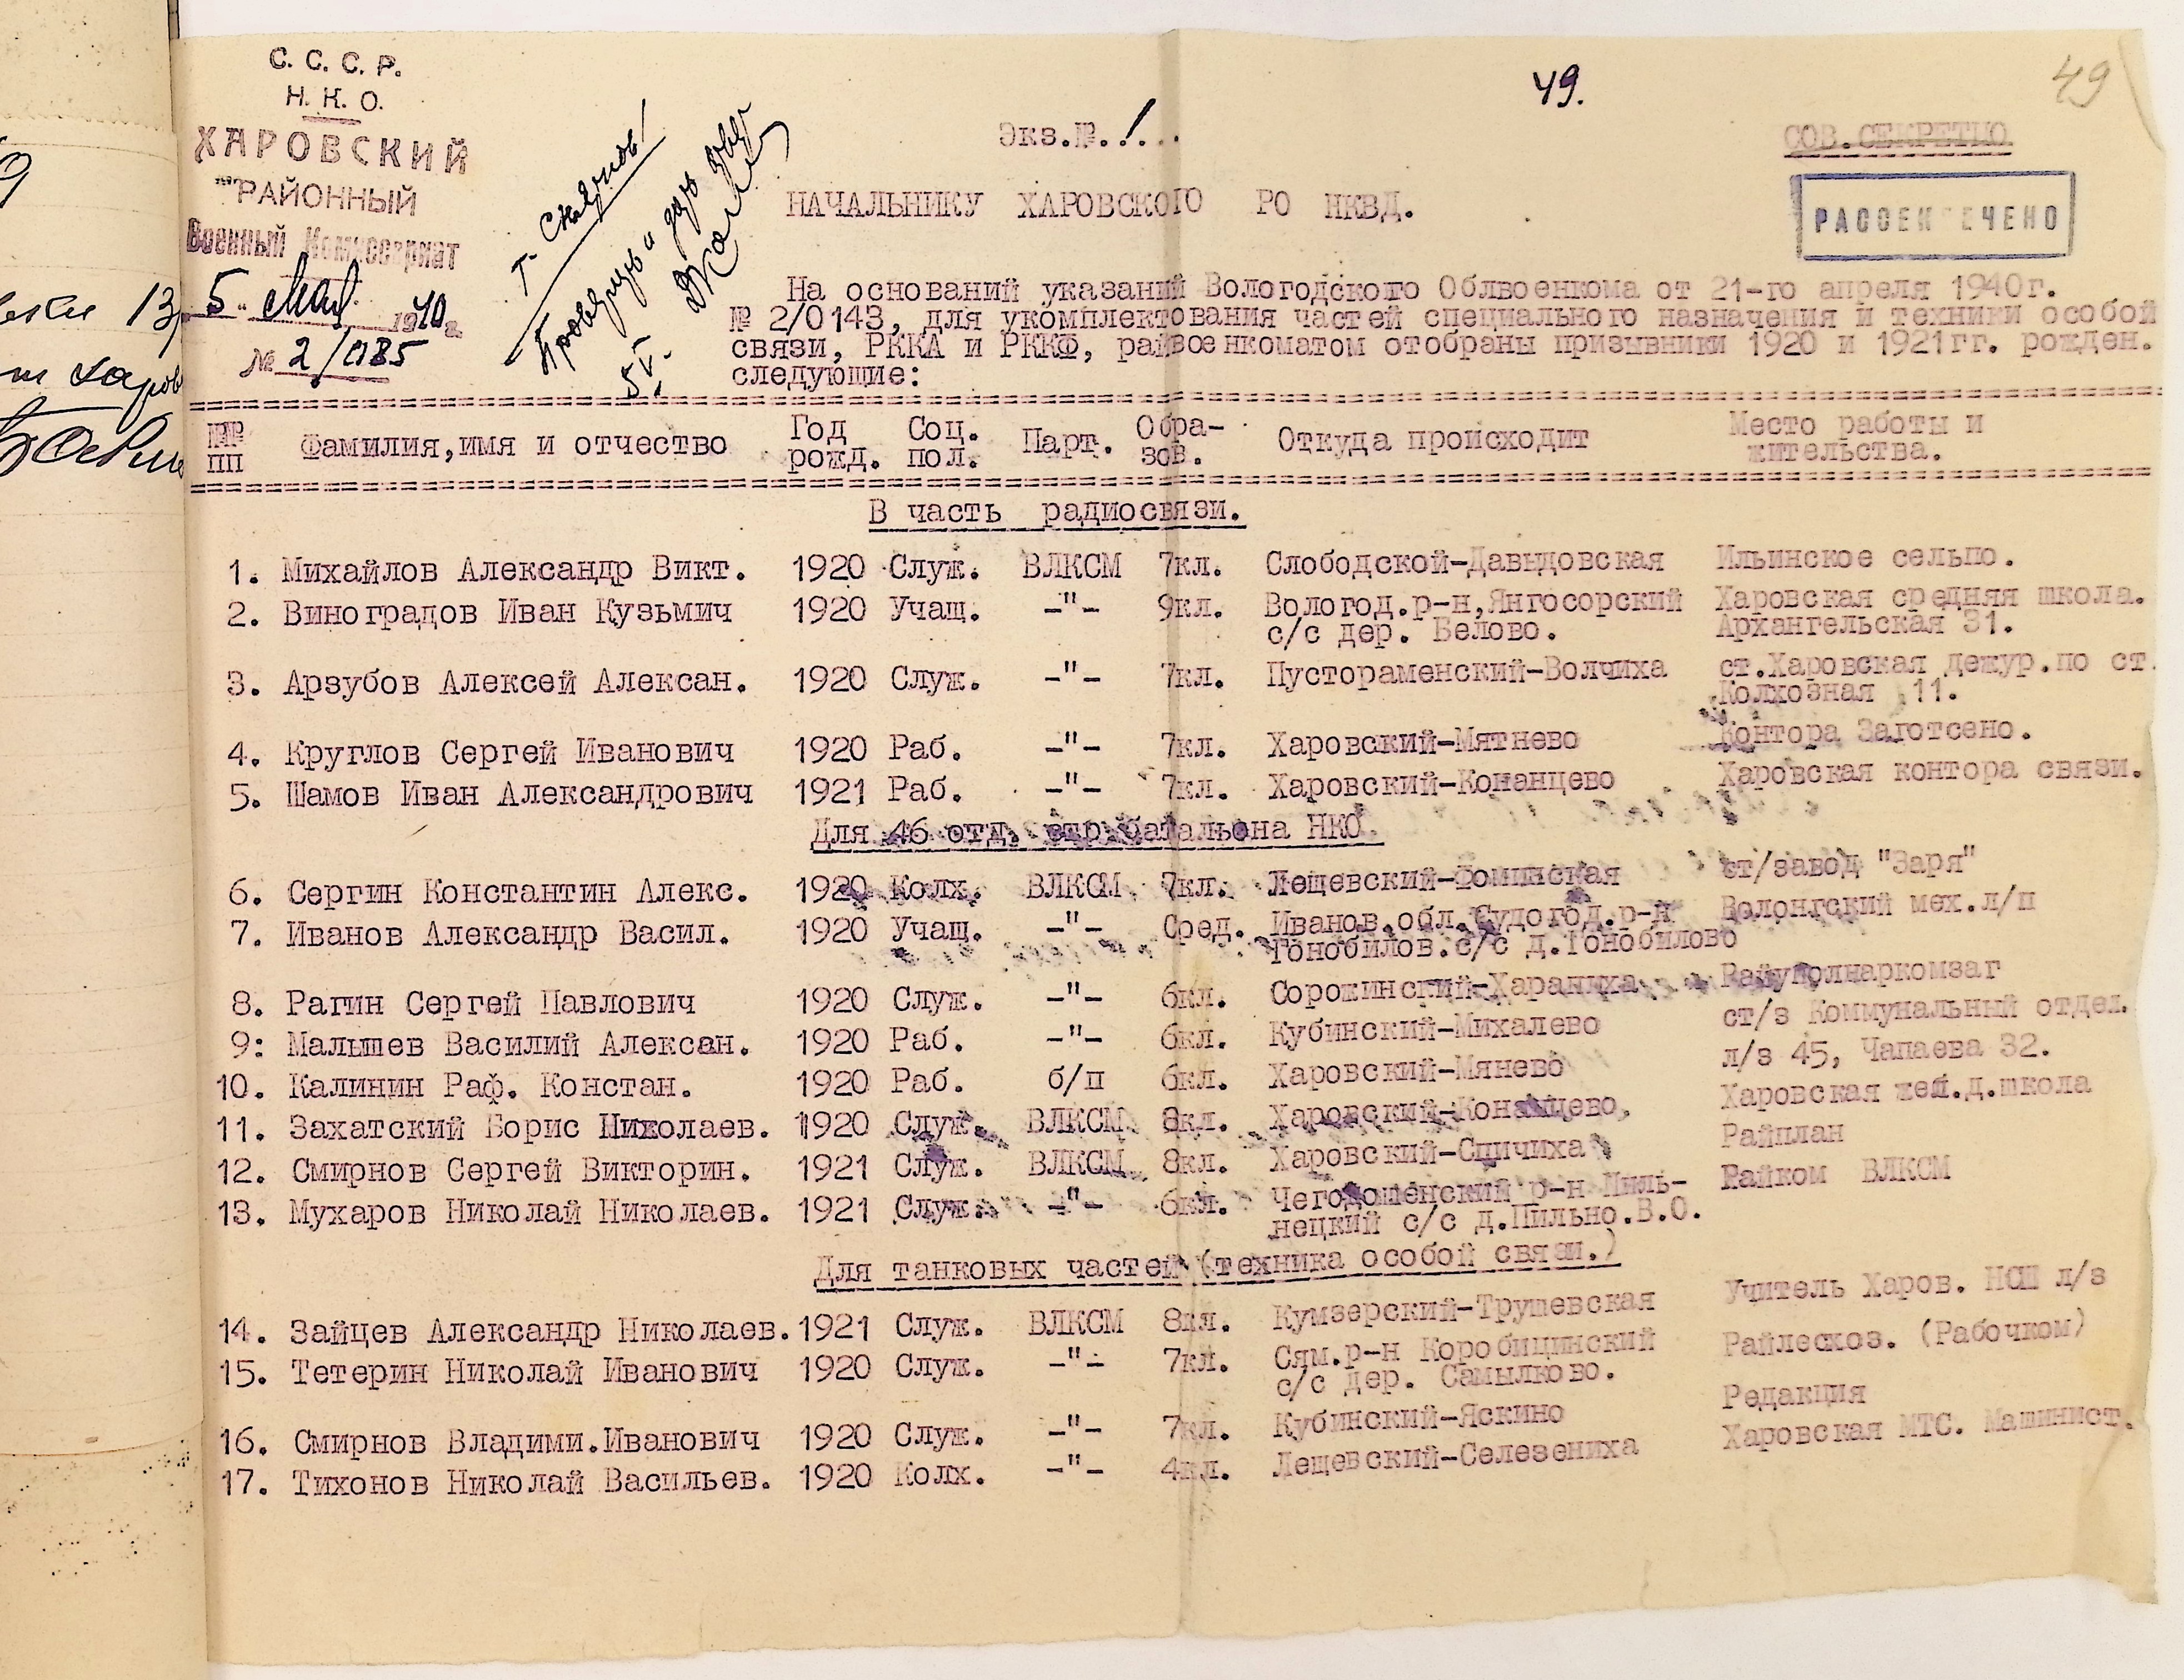 С. С. С. Р.
Н. К. О.
ХАРОВСКИЙ
РАЙОННЫЙ
Военный Комиссариат
5 мая 1940 г.
№ 2/0185
49.
49
Экз.№.1...
СОВ.СЕКРЕТНО
НАЧАЛЬНИКУ ХАРОВСКОГО РО НКВД.
РАССЕК ЕЧЕНО
На оснований указаний Вологодского Облвоенкома от 21-го апреля 1940г.
№ 2/0143, для укомплектования частей специального назначения и техники особой
связи, РККА и РККФ, райвоенкоматом отобраны призывники 1920 и 1921гг. рожден.
следующие:
№№ пп Фамилия,имя и отчество Год рожд. Соц. пол. Парт. Обра- зов. Откуда происходит Место работы и жительства.
В часть радиосвязи.
1. Михайлов Александр Викт. 1920 Служ. ВЛКСМ 7кл. Слободской-Давыдовская Ильинское сельпо.
2. Виноградов Иван Кузьмич 1920 Учащ. -"- 9кл. Вологод.р-н,Янгосорский Харовская средняя школа.
с/с дер. Белово. Архангельская 31.
3. Арзубов Алексей Алексан. 1920 Служ. -"- 7кл. Пустораменский-Волчиха ст.Харовская дежур.по ст.
Колхозная 11.
4. Круглов Сергей Иванович 1920 Раб. -"- 7кл. Харовский-Мятнево Контора Заготсено.
5. Шамов Иван Александрович 1921 Раб. -"- 7кл. Харовский-Конанцево Харовская контора связи.
Для 46 отд. стр.батальона НКО.
6. Сергин Константин Алекс. 1920 Колх. ВЛКСМ 7кл. Лещевский-Фоминская ст/завод "Заря"
7. Иванов Александр Васил. 1920 Учащ. -"- Сред. Иванов.обл.Судогод.р-н Волонгский мех.л/п
Гонобилов.с/с д.Гонобилово
8. Рагин Сергей Павлович 1920 Служ. -"- 6кл. Сорожинский-Хараниха Райуполнаркомзаг
9: Малышев Василий Алексан. 1920 Раб. -"- 6кл. Кубинский-Михалево ст/з Коммунальный отдел.
10. Калинин Раф. Констан. 1920 Раб. б/п 6кл. Харовский-Мянево л/з 45, Чапаева 32.
11. Захатский Борис Николаев. 1920 Служ. ВЛКСМ 8кл. Харовский-Конанцево. Харовская жел.д.школа
12. Смирнов Сергей Викторин. 1921 Служ. ВЛКСМ 8кл. Харовский-Спичиха Райплан
13. Мухаров Николай Николаев. 1921 Служ. -"- 6кл. Чегодошенский р-н Пиль- Райком ВЛКСМ
нецкий с/с д.Пильно.В.О.
Для танковых частей (техника особой связи.)
14. Зайцев Александр Николаев. 1921 Служ. ВЛКСМ 8кл. Кумзерский-Трушевская Учитель Харов. НСШ л/з
15. Тетерин Николай Иванович 1920 Служ. -"- 7кл. Сям.р-н Коробицинский Райлесхоз. (Рабочком)
с/с дер. Самылково.
16. Смирнов Владими.Иванович 1920 Служ. -"- 7кл. Кубинский-Яскино Редакция
17. Тихонов Николай Васильев. 1920 Колх. -"- 4кл. Лещевский-Селезениха Харовская МТС. Машинист.